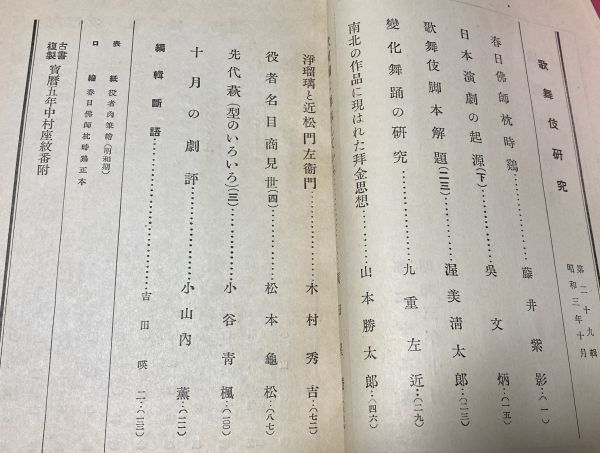 歌舞伎研究 第二十九輯 昭和三年十月
春日佛師枕時鷄……藤井紫影…(一)
日本演劇の起源(下)……吳文炳…(一五)
歌舞伎脚本解題(二三)……渥美淸太郎…(二三)
變化舞踊の研究……九重左近…(二九)
南北の作品に現はれた拜金思想……山本勝太郎…(四六)
淨瑠璃と近松門左衞門……木村秀吉…(七二)
役者名目商見世(四)……松本龜松…(八七)
先代萩(型のいろいろ)(三)……小谷青楓…(一〇〇)
十月の劇評……小山內薰…(一一一)
編輯斷語……吉田暎二…(一三)
表紙 役者肉筆繪(明和期)
口繪 春日佛師枕時鷄正本
古書複製 寶曆五年中村座紋番附